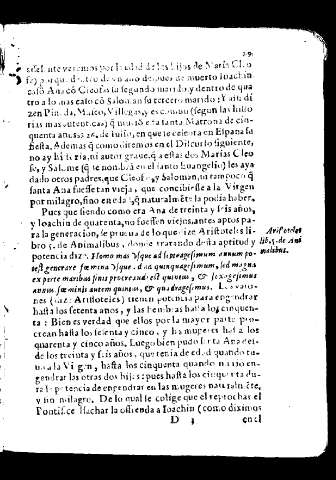 29.
adelante veremos por la edad de los hijos de Maria Cleo
fe) porque dentro de vn año despues de muerto Ioachin
casò Ana cõ Cleofas su segundo marido, y dentro de qua
tro a lo mas casò cõ Salomon su tercero marido: y assi di
zen Pineda, Mateo, Villegas, y es comun (segun las histo
rias mas autenticas) q̃ murio esta santa Matrona de cin-
quenta años, a 26. de Iulio, en que se celebra en España su
fiesta. Ademas q̃ como diremos en el Discurso siguiente,
no ay historia, ni autor graue, q̃ a estas dos Marias Cleo
fe, y Salome (q̃ se nombrã en el santo Euangelio) les aya
dado otros padres, que Cleofas, y Salomon, ni tampoco q̃
santa Ana fuesse tan vieja, que concibiesse a la Virgen
por milagro, sino en edad q̃ naturalmẽte la podia hauer.
Pues que siendo como era Ana de treinta y seis años,
y Ioachin de quarenta, no fuessen viejos, antes aptos pa-
ra la generacion, se prueua de lo que dize Aristoteles li-
bro 5. de Animalibus, donde tratando desta aptitud y
potencia diz. Homo mas vsque ad septuagesimum annum po-
test generare fœmina vsque ad quinquagesimum, sed magna
ex parte maribus finis procreandi est quinto, & sexagesimus
annus fœminis autem quintus, & quadragesimus. Los varo-
nes (dize Aristoteles) tienen potencia para engendrar
hasta los setenta años, y las hembras hasta los cinquen-
ta: Bien es verdad que ellos por la mayor parte pro-
crean hasta los sesenta y cinco, y las mugeres hasta los
quarenta y cinco años. Luego bien pudo santa Ana des-
de los treinta y seis años, que tenia de edad quando tu-
uo a la Virgen, hasta los cinquenta quando murio en-
gendrar las otras dos hijas: pues hasta los cinquenta du-
ra la potencia de engendrar en las mugeres naturalmẽte,
y no milagro. De lo qual se colige que el reprochar el
Pontifice Isachar la ofrenda a Ioachin (como diximos
D 3 en el
Aristoteles
lib. 5. de Ani
malibus.